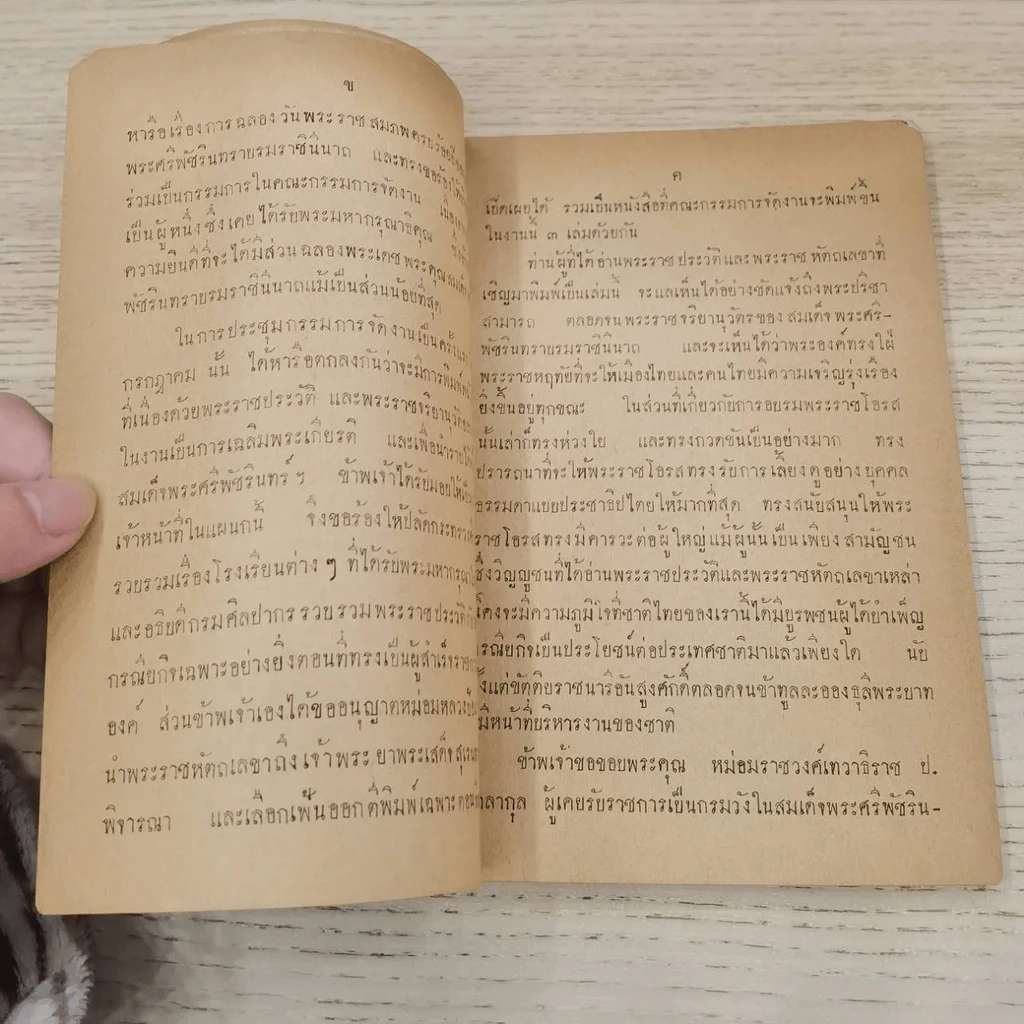 ข
หารือเรื่องการฉลองวันพระราชสมภพครบร้อยปี
พระศรีพัชรินทราบรมราชินีนาถ และทรงขอร้องให้
ร่วมเป็นกรรมการในคณะกรรมการจัดงาน
เป็นผู้หนึ่งซึ่งเคยได้รับพระมหากรุณาธิคุณ
ความยินดีที่จะได้มีส่วนฉลองพระเดชพระคุณ
พัชรินทราบรมราชินีนาถแม้เป็นส่วนน้อยที่สุด
ในการประชุมกรรมการจัดงานเป็นครั้ง
กรกฎาคม นั้น ได้หารือตกลงกันว่าจะมีการพิมพ์
ที่เนื่องด้วยพระราชประวัติ และพระราชจริยานุวัตร
ในงานเป็นการเฉลิมพระเกียรติ และเพื่อนำรายได้
สมเด็จพระศรีพัชรินทร์ ฯ ข้าพเจ้าได้รับมอบให้เป็น
เจ้าหน้าที่ในแผนกนี้ จึงขอร้องให้ปลัดกระทรวง
รวบรวมเรื่องโรงเรียนต่าง ๆ ที่ได้รับพระมหากรุณา
และอธิบดีกรมศิลปากรรวบรวมพระราชประวัติ
กรณียกิจเฉพาะอย่างยิ่งตอนที่ทรงเป็นผู้สำเร็จราช
องค์ ส่วนข้าพเจ้าเองได้ขออนุญาตหม่อมหลวง
นำพระราชหัตถเลขาถึงเจ้าพระยาพระเสด็จสุเรน
พิจารณา และเลือกเฟ้นออกตีพิมพ์เฉพาะตอน
ค
เปิดเผยได้ รวมเป็นหนังสือที่คณะกรรมการจัดงานจะพิมพ์ขึ้น
ในงานนี้ ๓ เล่มด้วยกัน
ท่านผู้ที่ได้อ่านพระราชประวัติและพระราชหัตถเลขาที่
เชิญมาพิมพ์เป็นเล่มนี้ จะแลเห็นได้อย่างชัดแจ้งถึงพระปรีชา
สามารถ ตลอดจนพระราชจริยานุวัตรของสมเด็จพระศรี-
พัชรินทราบรมราชินีนาถ และจะเห็นได้ว่าพระองค์ทรงใฝ่
พระราชหฤทัยที่จะให้เมืองไทยและคนไทยมีความเจริญรุ่งเรือง
ยิ่งขึ้นอยู่ทุกขณะ ในส่วนที่เกี่ยวกับการอบรมพระราชโอรส
นั้นเล่าก็ทรงห่วงใย และทรงกวดขันเป็นอย่างมาก ทรง
ปรารถนาที่จะให้พระราชโอรสทรงรับการเลี้ยงดูอย่างบุคคล
ธรรมดาแบบประชาธิปไตยให้มากที่สุด ทรงสนับสนุนให้พระ
ราชโอรสทรงมีคารวะต่อผู้ใหญ่แม้ผู้นั้นเป็นเพียงสามัญชน
ซึ่งวิญญูชนที่ได้อ่านพระราชประวัติและพระราชหัตถเลขาเหล่า
คงจะมีความภูมิใจที่ชาติไทยของเรานี้ได้มีบูรพชนผู้ได้บำเพ็ญ
รณียกิจเป็นประโยชน์ต่อประเทศชาติมาแล้วเพียงใด นับ
ั้งแต่ขัตติยราชนารีอันสูงศักดิ์ตลอดจนข้าทูลละอองธุลีพระบาท
มีหน้าที่บริหารงานของชาติ
ข้าพเจ้าขอขอบพระคุณ หม่อมราชวงศ์เทวาธิราช ป.
มาลากุล ผู้เคยรับราชการเป็นกรมวังในสมเด็จพระศรีพัชริน-